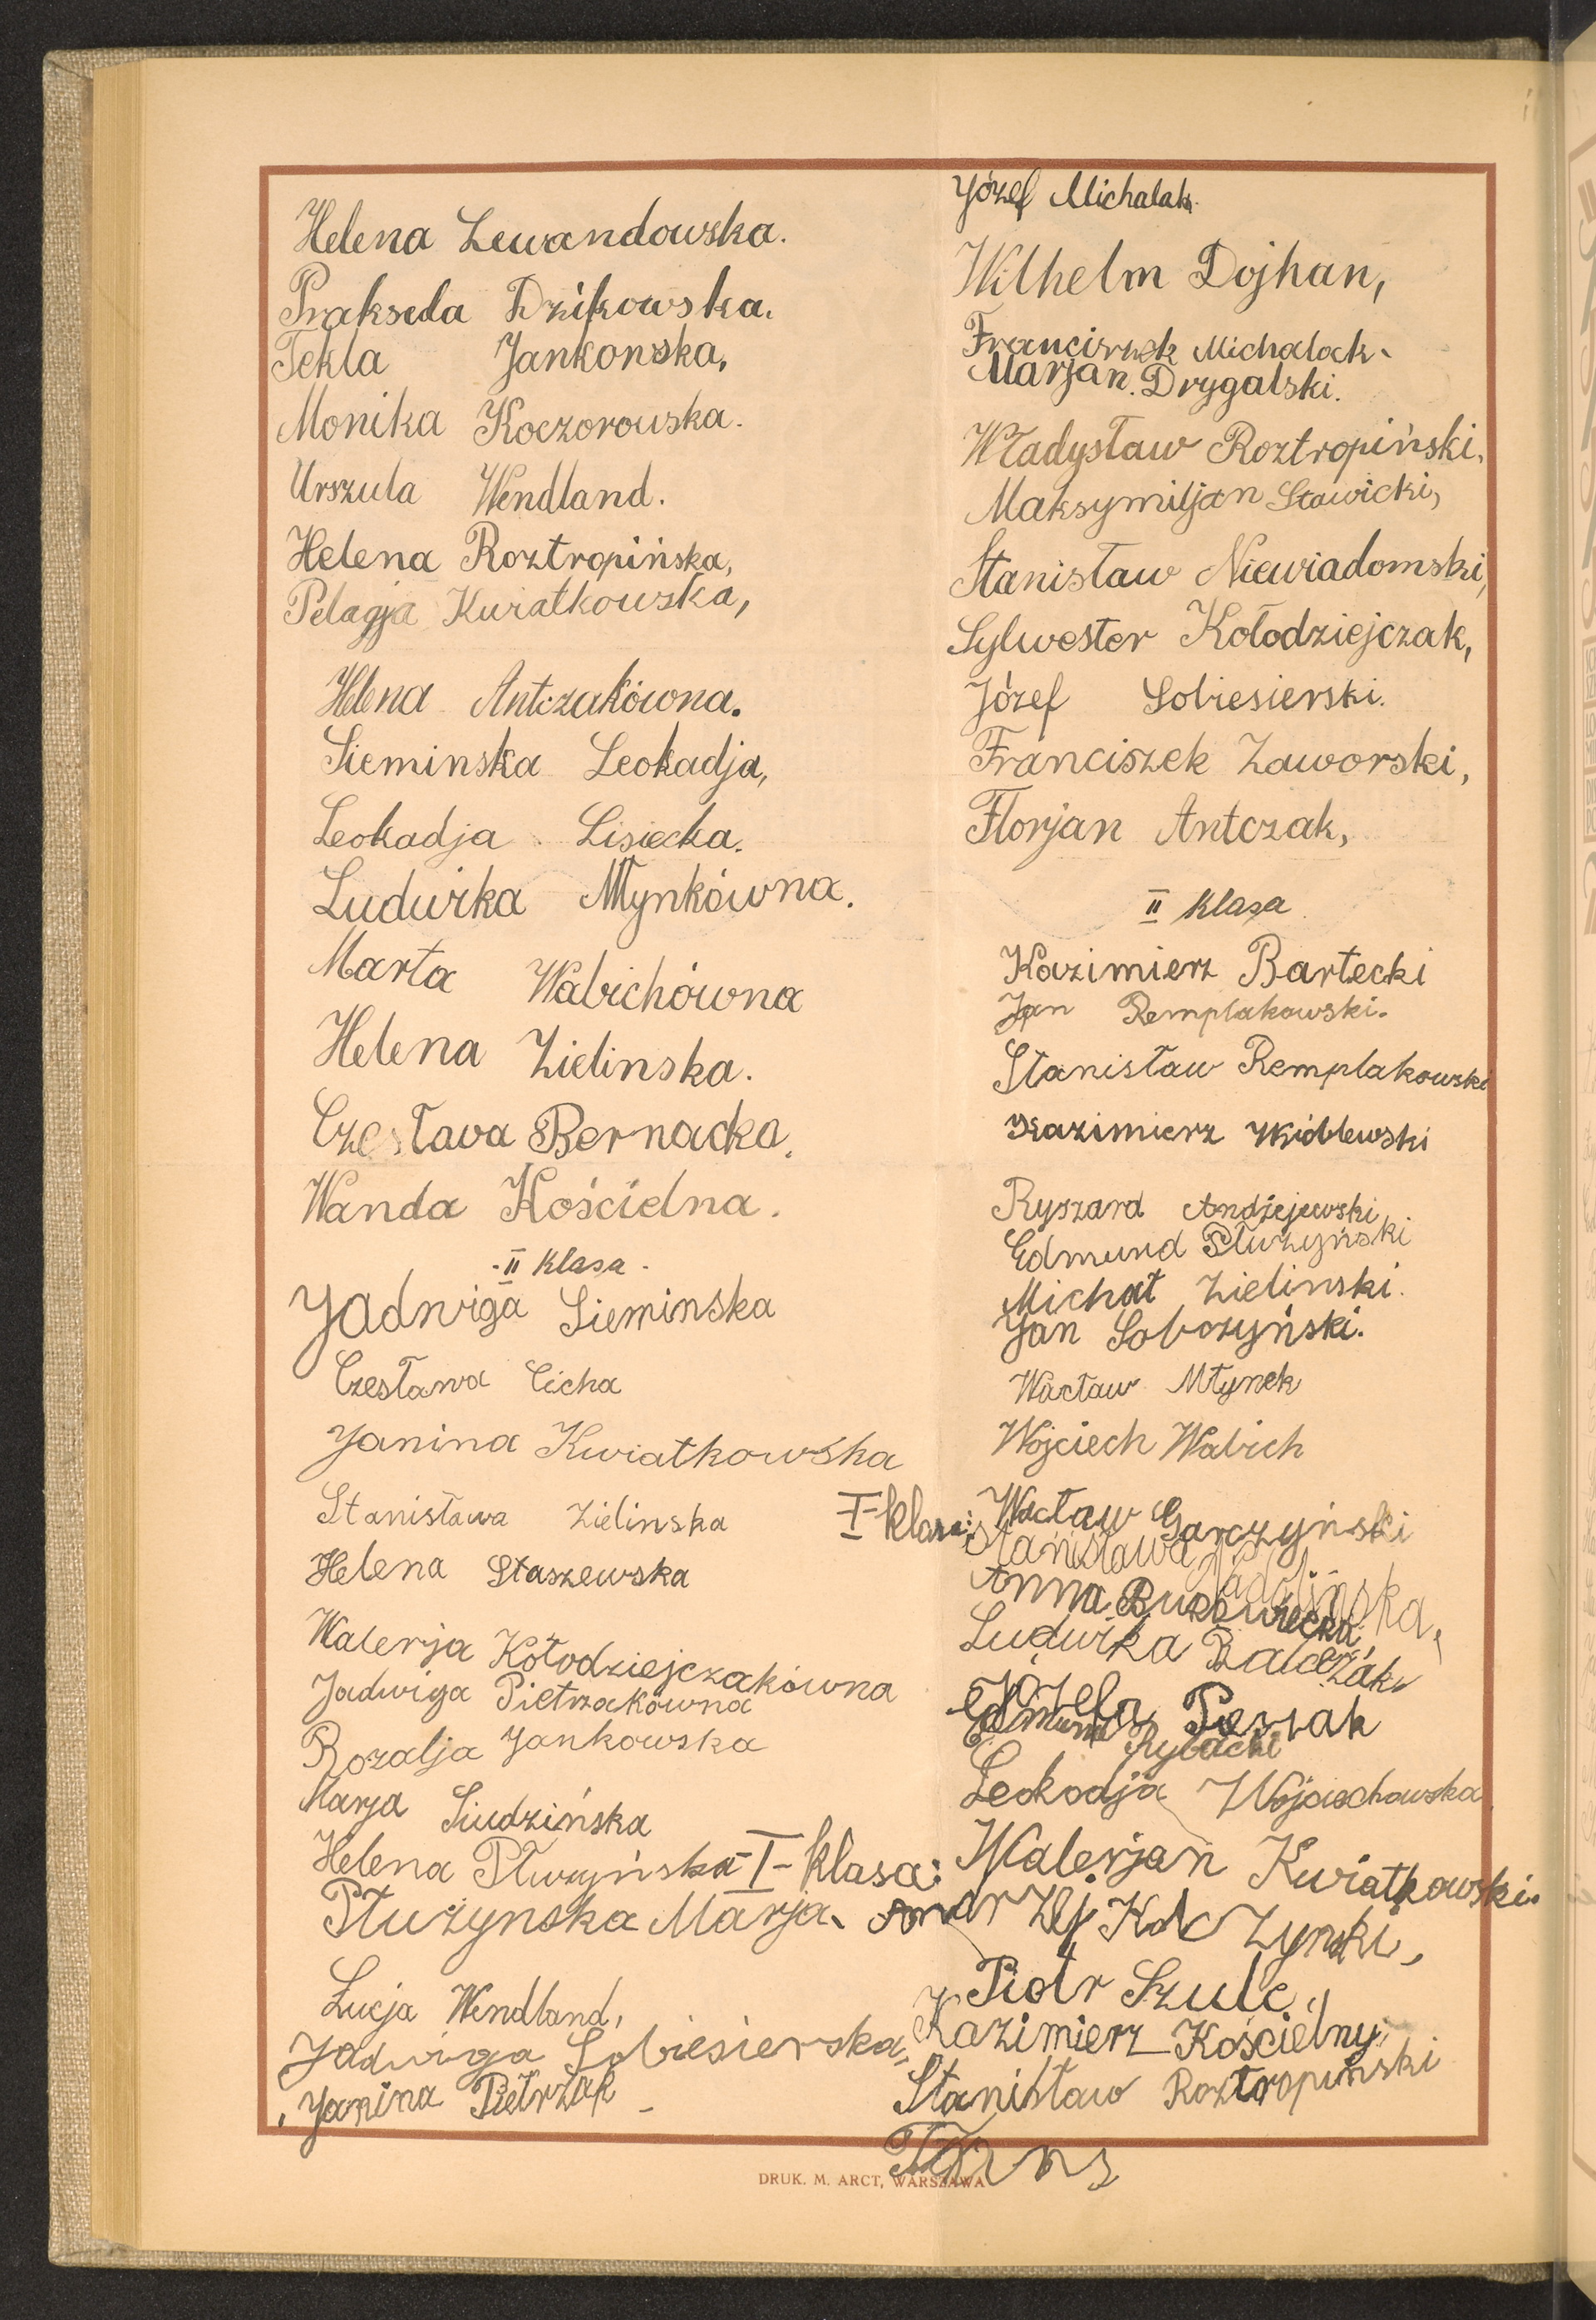 Helena Lewandowska.
Prakseda Dzikowska.
Tekla Jankonska,
Monika Koczorowska.
Urszula Wendland.
Helena Roztropińska,
Pelagja Kwiatkowska,
Helena Antczakówna.
Sieminska Leokadja,
Leokadja Lisiecka.
Ludwika Młynkówna.
Marta Wabichówna
Helena Zielinska.
Czesława Bernacka.
Wanda Kościelna.
II klasa
Jadwiga Sieminska
Czesława Cicha
Janina Kwiatkowska
Stanisława Zielinska
Helena Staszewska
Walerja Kołodziejczakówna
Jadwiga Pietrzakówna
Rozalja Jankowska
Marja Siudzińska
Helena Płuzyńska
Płużynska Marja.
Łucja Wendland,
Jadwiga Sobiesierska,
Janina Pietrzak
Józef Michalak.
Wilhelm Dojhan,
Franciszek Michalak.
Marjan. Drygalski.
Władysław Roztropiński,
Maksymiljan Stawicki,
Stanisław Niewiadomski,
Sylwester Kołodziejczak,
Józef Sobiesierski.
Franciszek Zaworski,
Florjan Antczak,
II klasa
Kazimierz Bartecki
Jan Remplakowski.
Stanisław Remplakowski
Kazimierz Wróblewski
Ryszard Andżejewski
Edmund Płużyński
Michał Zielinski.
Jan Sobozyński.
Wacław Młynek
Wojciech Wabich
I-klasa: Wacław Garczyński
Stanisława
Anna Bukowiecka,
Ludwika Balcerzak,
Józefa
Edmund Rybacki
Leokadja Wojciechowska
I-klasa: Walerjan Kwiatkowski.
Andrzej
Piotr Szulc,
Kazimierz Kościelny
Stanisław Roztropinski
DRUK. M. ARCT, WARSZAWA